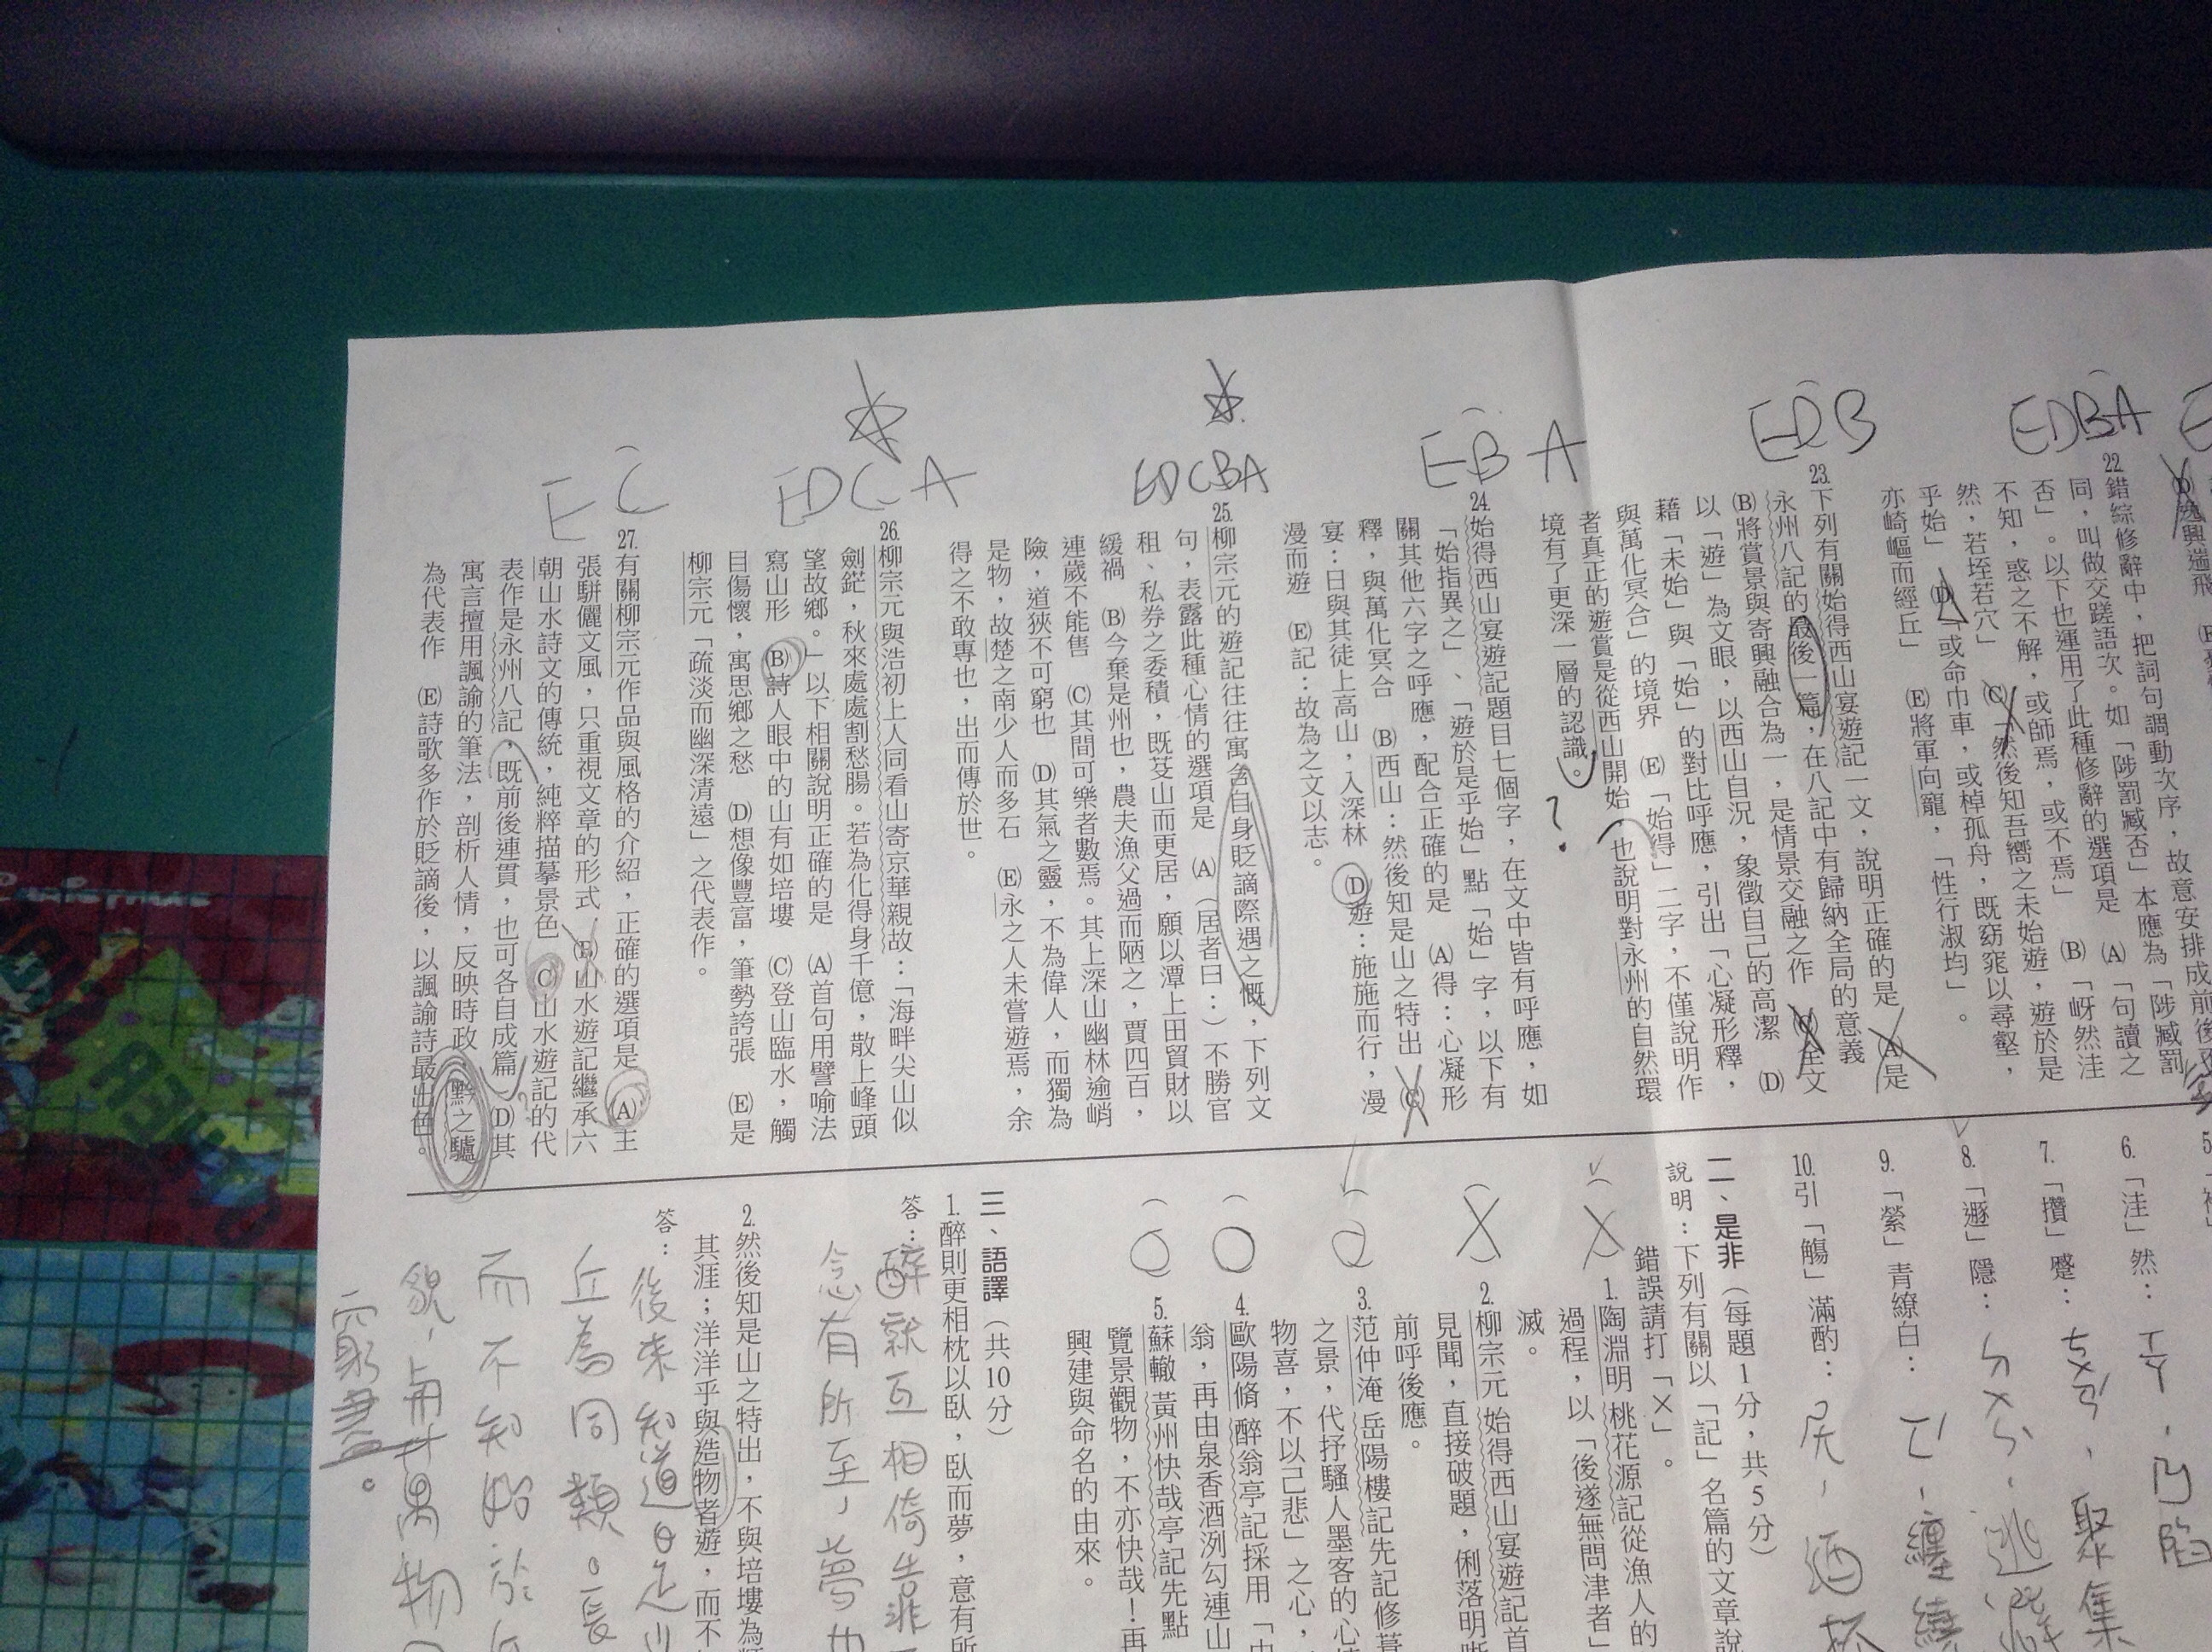 EDBA
22.錯綜修辭中，把詞句調動次序，故意安排成前後
同，叫做交蹉語次。如「陟罰臧否」本應為「陟臧罰
否」。以下也運用了此種修辭的選項是　(A)「句讀之
不知，惑之不解，或師焉，或不焉」　(B)「岈然洼
然，若垤若穴」　(C)「然後知吾嚮之未始遊，遊於是
乎始」　(D)「或命巾車，或棹孤舟，既窈窕以尋壑，
亦崎嶇而經丘」　(E)將軍向寵，「性行淑均」。
EDB
23.下列有關始得西山宴遊記一文，說明正確的是　(A)是
永州八記的最後一篇，在八記中有歸納全局的意義
(B)將賞景與寄興融合為一，是情景交融之作　(C)全文
以「遊」為文眼，以西山自況，象徵自己的高潔　(D)
藉「未始」與「始」的對比呼應，引出「心凝形釋，
與萬化冥合」的境界　(E)「始得」二字，不僅說明作
者真正的遊賞是從西山開始，也說明對永州的自然環
境有了更深一層的認識。
？
EBA
24.始得西山宴遊記題目七個字，在文中皆有呼應，如
「始指異之」、「遊於是乎始」點「始」字，以下有
關其他六字之呼應，配合正確的是　(A)得：心凝形
釋，與萬化冥合　(B)西山：然後知是山之特出　(C)
宴：日與其徒上高山，入深林　(D)遊：施施而行，漫
漫而遊　(E)記：故為之文以志。
EDCBA
25.柳宗元的遊記往往寓含自身貶謫際遇之慨，下列文
句，表露此種心情的選項是　(A)（居者曰：）不勝官
租、私券之委積，既芟山而更居，願以潭上田貿財以
緩禍　(B)今棄是州也，農夫漁父過而陋之，賈四百，
連歲不能售　(C)其間可樂者數焉。其上深山幽林逾峭
險，道狹不可窮也　(D)其氣之靈，不為偉人，而獨為
是物，故楚之南少人而多石　(E)永之人未嘗遊焉，余
得之不敢專也，出而傳於世。
EDCA
26.柳宗元與浩初上人同看山寄京華親故：「海畔尖山似
劍鋩，秋來處處割愁腸。若為化得身千億，散上峰頭
望故鄉。」以下相關說明正確的是　(A)首句用譬喻法
寫山形　(B)詩人眼中的山有如培塿　(C)登山臨水，觸
目傷懷，寓思鄉之愁　(D)想像豐富，筆勢誇張　(E)是
柳宗元「疏淡而幽深清遠」之代表作。
EC
27.有關柳宗元作品與風格的介紹，正確的選項是　(A)主
張駢儷文風，只重視文章的形式　(B)山水遊記繼承六
朝山水詩文的傳統，純粹描摹景色　(C)山水遊記的代
表作是永州八記，既前後連貫，也可各自成篇　(D)其
寓言擅用諷諭的筆法，剖析人情，反映時政　黔之驢
為代表作　(E)詩歌多作於貶謫後，以諷諭詩最出色。
6.「洼」然：ㄨㄚ，凹陷
7.「攢」蹙：ㄘㄨㄢˊ，聚集
8.「遯」隱：ㄉㄨㄣˋ，逃避
9.「縈」青繚白：ㄥˊ，纏繞
10.引「觴」滿酌：ㄕㄤ，酒杯
二、是非（每題1分，共5分）
說明：下列有關以「記」名篇的文章說
錯誤請打「×」。
（×）1.陶淵明 桃花源記從漁人的
過程，以「後遂無問津者」
滅。
（×）2.柳宗元 始得西山宴遊記首
見聞，直接破題，俐落明晰
前呼後應。
（○）3.范仲淹 岳陽樓記先記修葺
之景，代抒騷人墨客的心情
物喜，不以己悲」之心，
（○）4.歐陽脩 醉翁亭記採用「由
翁，再由泉香酒洌勾連山
（○）5.蘇轍 黃州快哉亭記先點
覽景觀物，不亦快哉！再
興建與命名的由來。
三、語譯（共10分）
1.醉則更相枕以臥，臥而夢，意有所
答：醉就互相倚靠
念有所至，夢也
2.然後知是山之特出，不與培塿為類
其涯；洋洋乎與造物者遊，而不
答：後來知道
丘為同類。
而不知始於
貌，與萬物
窮盡。